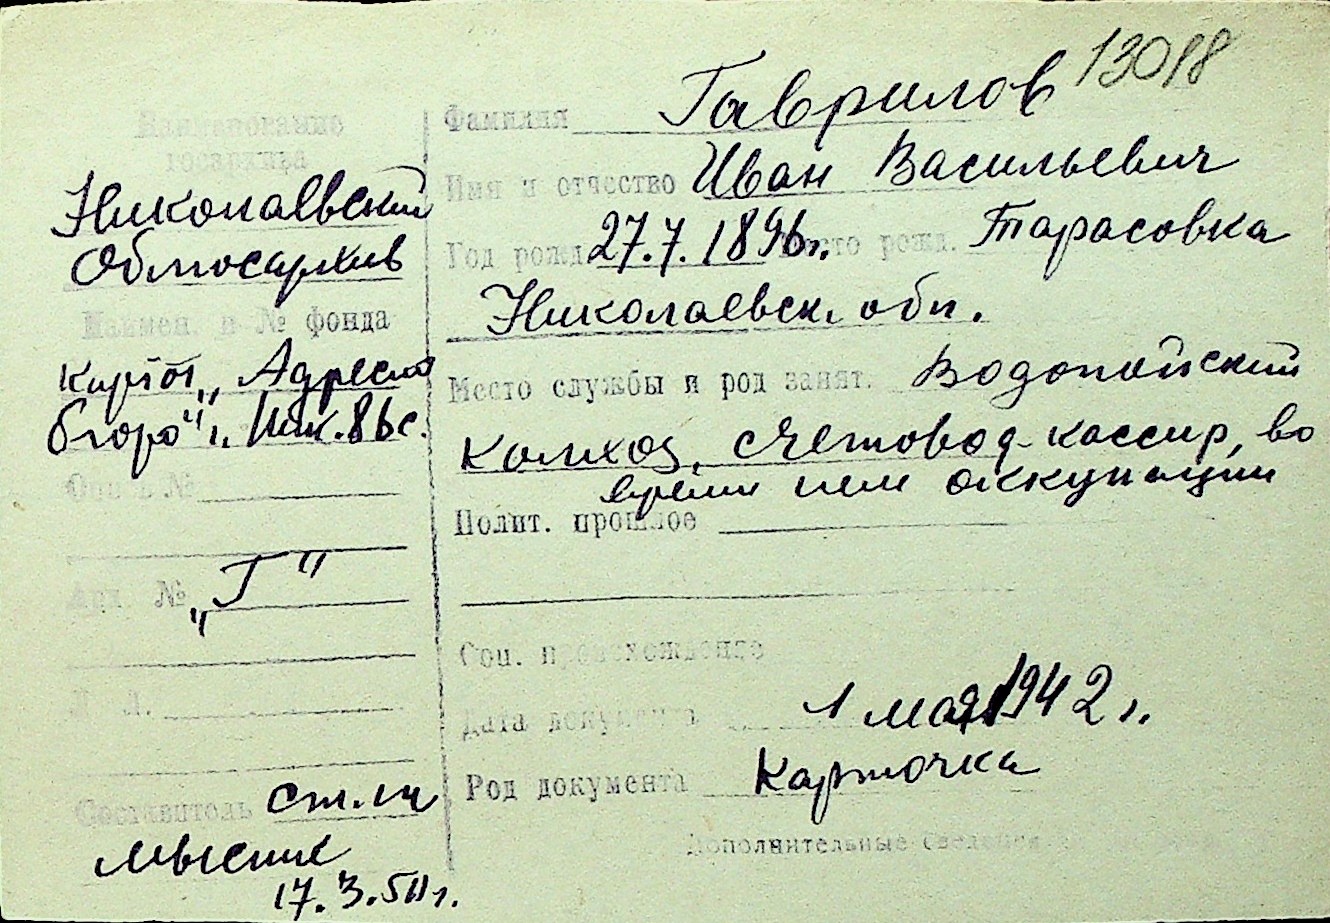 13018
Наименование
госархива
Николаевский
Облгосархив
Наимен. и № фонда
Картот. „Адресное
бюро" г. Ник.
Опись №
Арх. № „Г"
Л. Л.
Составитель ст.
17.3.50 г.
Фамилия Гаврилов
Имя и отчество Иван Васильевич
Год рожд. 27.7.1896г. Место рожд. Тарасовка
Николаевск. обл.
Место службы и род занят. Водопойский
колхоз, счетовод-кассир, во
время нем оккупации
Полит. прошлое
Соц. происхождение
Дата документа 1 мая 1942 г.
Род документа Карточка
Дополнительные сведения